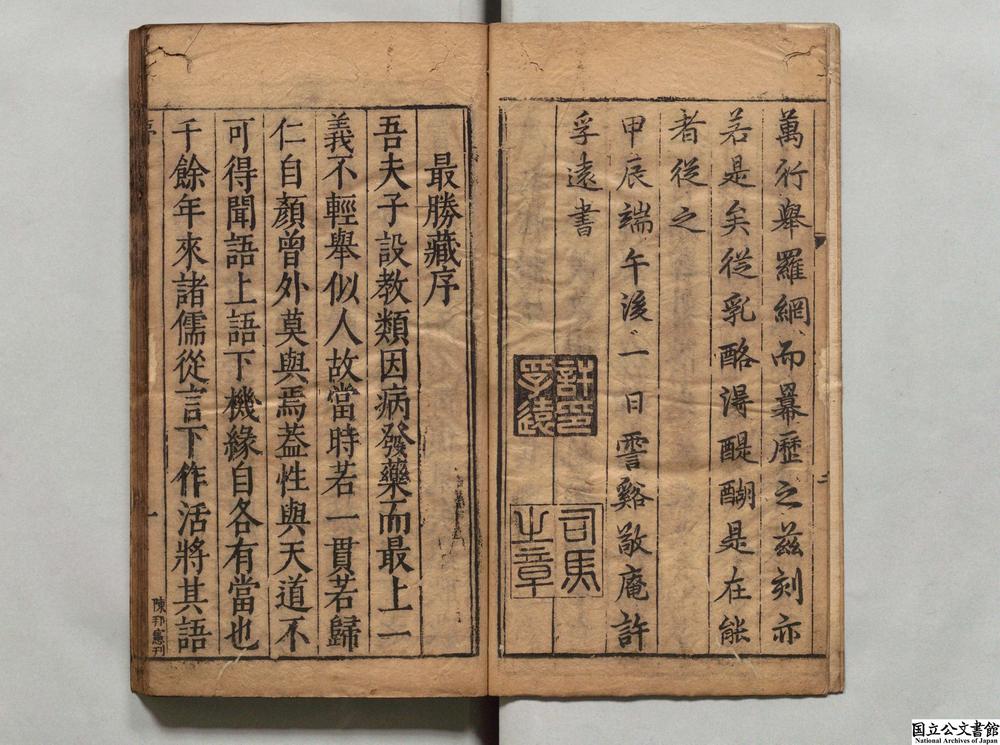 萬行舉羅網而冪歷之茲刻亦
若是矣從乳酪得醍醐是在能
者從之
甲辰端午後一日霅谿敬庵許
孚遠書
許孚遠印
司馬之章
最勝藏序
吾夫子設教類因病發藥而最上一
義不輕舉似人故當時若一貫若歸
仁自顏曾外莫與焉葢性與天道不
可得聞語上語下機緣自各有當也
千餘年來諸儒從言下作活將其語
序
一
陳邦
刊
国立公文書館
National Archives of Japan